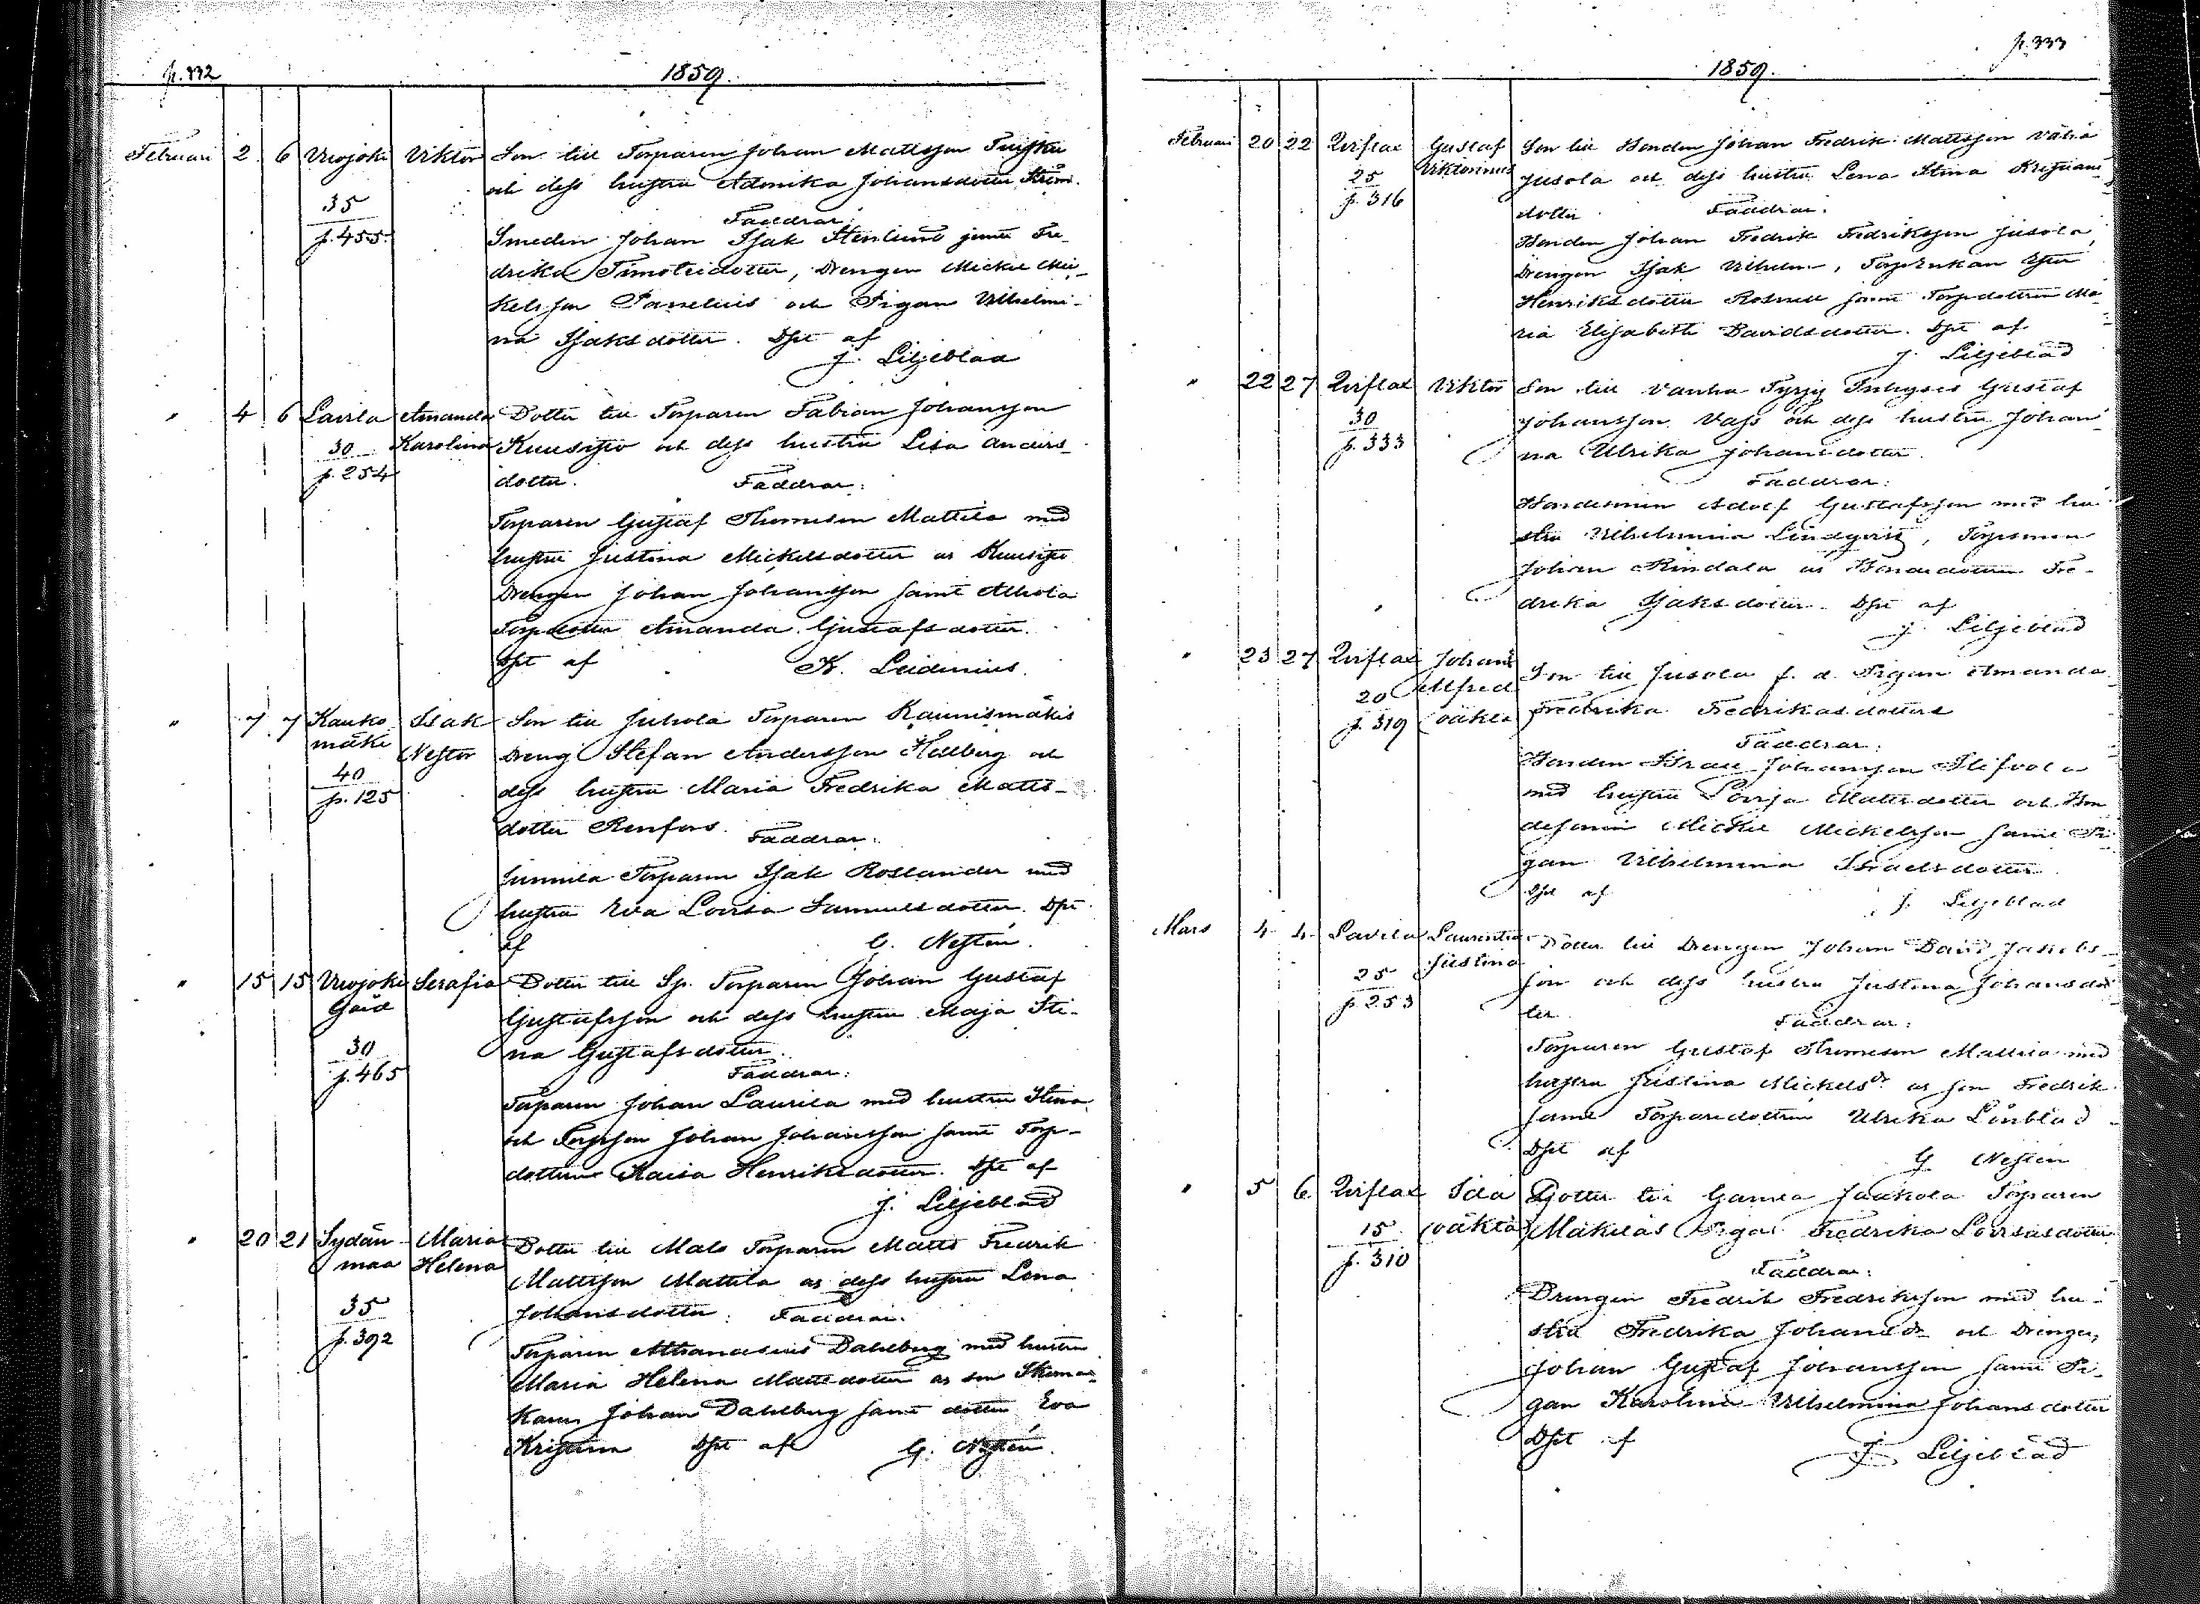 p. 332
1859.
Februari 2 6 Vuojoki Viktor Son till Torparen Johan Mattsson
35 och dess hustru Johansdotter
p. 455. Faddrar:
Smeden Johan Isak Stenlund jemte Fre-
drika Timoteidotter, Drengen Mickel Mic-
kelsson och Pigan Vilhelmi-
na Isaksdotter. Dpt af
J. Liljeblad
" 4 6 Lavila Amanda Dotter till Torparen Fabian Johansson
30 Karolina Kuusisto och dess hustru Lisa Anders-
p. 254 dotter. Faddrar:
Torparen Gustaf Thomsson Mattila med
hustru Justina Mickelsdotter
Drengen Johan Johansson samt
Torpdotter Amanda Gustafsdotter.
Dpt af K. Leidenius.
" 7 7 Kauko Isak Son till Juhola Torparen Kaunismäkis
mäki Nestor Dreng Stefan Andersson Hellberg och
40 dess hustru Maria Fredrika Matts-
p. 125 dotter Renfors. Faddrar:
Torparen Isak Roslander med
hustru Eva Lovisa Samuelsdotter. Dpt
af G. Nestén.
" 15 15 Vuojoki Serafia Dotter till Sp. Torparen Johan Gustaf
Gård Gustafsson och dess hustru Maja Sti-
30 na Gustafsdotter.
p. 465 Faddrar:
Torparen Johan Laurila med hustru Stina
och Torpson Johan Johansson samt Torp-
dottren Kaisa Henriksdotter. Dpt af
J. Liljeblad
" 20 21 Sydän- Maria Dotter till Torparen Matts Fredrik
maa Helena Mattsson Mattila dess hustru Lena
35 Johansdotter. Faddrar:
p. 392 Torparen Athanasius Dahlberg med hustru
Maria Helena Mattsdotter son
Johan Dahlberg samt dotter Eva
Kristina Dpt af G. Nestén.
p. 333
1859.
Februari 20 22 Irjflax Gustaf Son till Bonden Johan Fredrik Mattsson
25 Viktorinus Jusola och dess hustru Lena Stina Kristians-
p. 316 dotter. Faddrar:
Bonden Johan Fredrik Fredriksson Jusola,
Drengen Isak Vilhelm, Torpenkan
Henriksdotter samt Torpdottren Ma-
ria Elisabeth Davidsdotter. Dpt af
J. Liljeblad
" 22 27 Irjflax Viktor Son till Vanha Inhyses Gustaf
30 Johansson Vass och dess hustru Johan-
p. 333 na Ulrika Johansdotter.
Faddrar:
Bondesonen Adolf Gustafsson med hu-
stru Vilhelmina Lindqvist,
Johan Rindala Bondedottren Fre-
drika Isaksdotter. Dpt af
J. Liljeblad
" 23 27 Irjflax Johan Son till Jusola f. d. Pigan Amanda
20 Alfred Fredrika Fredriksdotters
p. 319 (oäkta Faddrar:
Bonden Israel Johansson
med hustru Lovisa Mattsdotter och Bon-
desonen Mickel Mickelsson samt Pi-
gan Vilhelmina Israelsdotter
Dpt af J. Liljeblad
Mars 4 4 Lavila Laurentia Dotter till Drengen Johan David Jakobs-
25 Justina son och dess hustru Justina Johansdot-
p. 253 ter. Faddrar:
Torparen Gustaf Thomsson Mattila med
hustru Justina Mickelsdr son Fredrik
samt Torparedottren Ulrika Linblad
Dpt af G. Nestén
" 5 6 Irjflax Ida Dotter till Gamla Jaakola Torparen
15 (oäkta Mäkiläs Piga Fredrika Lovisasdotter
p. 310 Faddrar:
Drengen Fredrik Fredriksson med hu-
stru Fredrika Johansdr och Drengen
Johan Gustaf Johansson samt Pi-
gan Karolina Vilhelmina Johansdotter
Dpt af J. Liljeblad